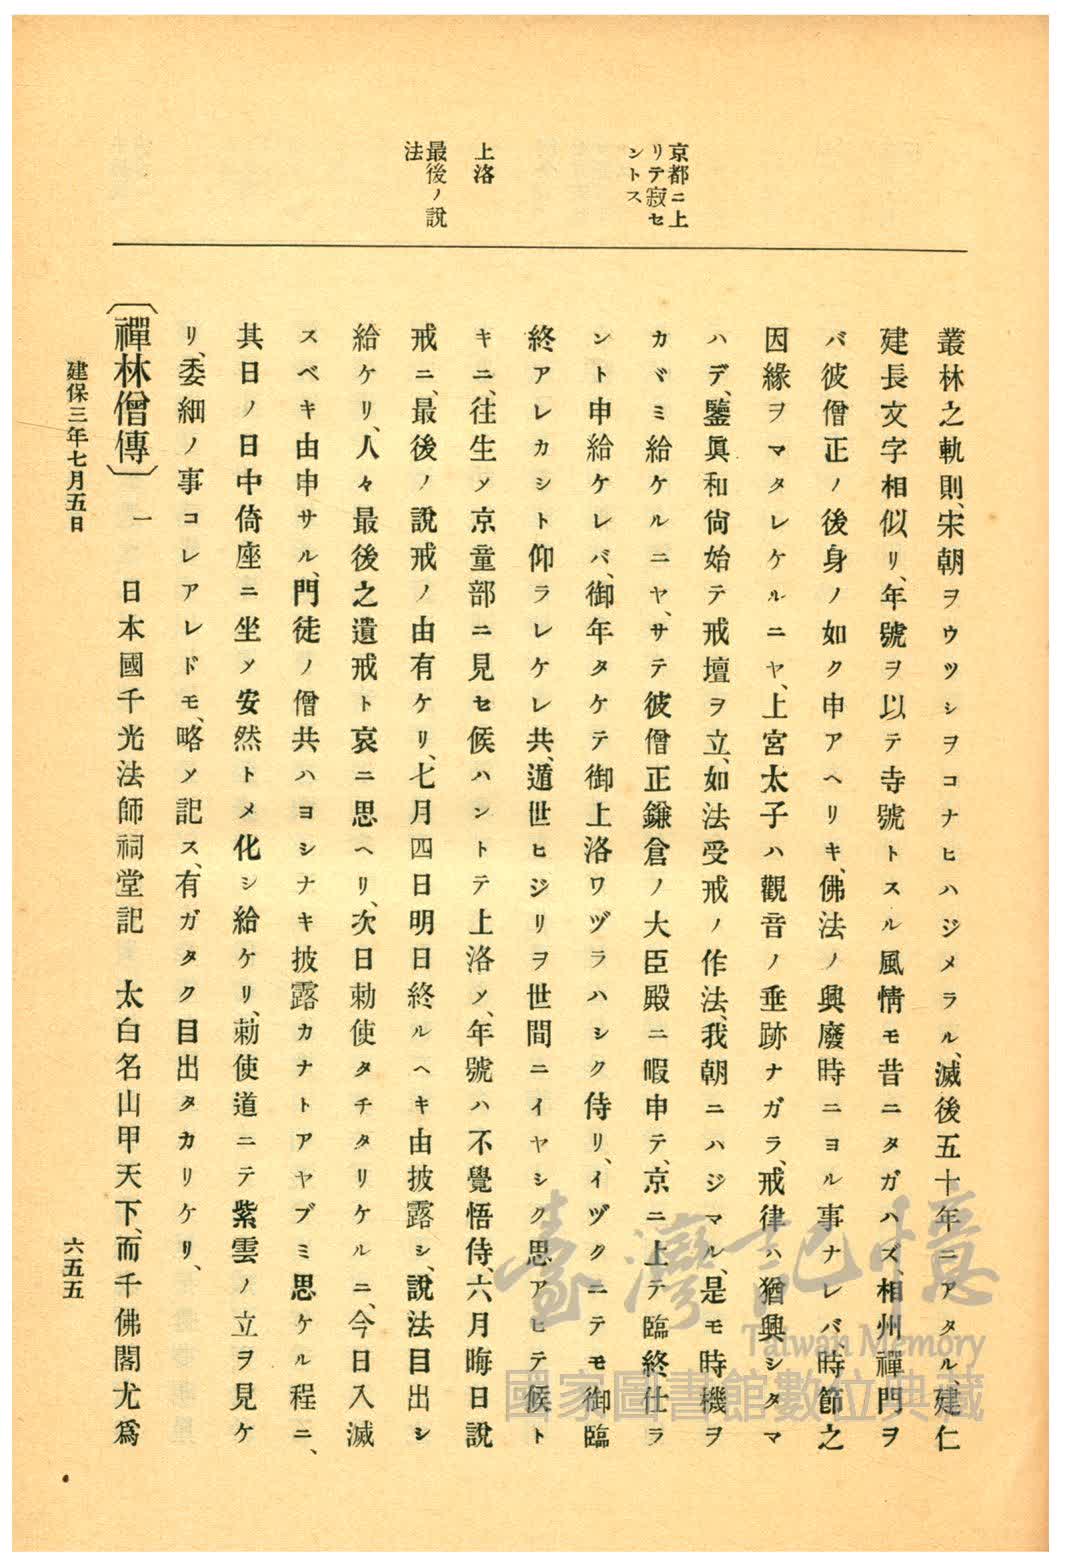 京都ニ上
リテ寂セ
ントス
上洛
最後ノ說
法
叢林之軌則、宋朝ヲウツシヲコナヒハジメラル、滅後五十年ニアタル、建仁
建長文字相似リ、年號ヲ以テ寺號トスル風情モ昔ニタガハズ、相州禪門ヲ
バ彼僧正ノ後身ノ如ク申アヘリキ、佛法ノ興廢時ニヨル事ナレバ、時節之
因緣ヲマタレケルニヤ、上宮太子ハ觀音ノ垂跡ナガラ、戒律ハ猶興シタマ
ハデ、鑒眞和尙始テ戒壇ヲ立、如法受戒ノ作法、我朝ニハジマル、是モ時機ヲ
カヾミ給ケルニヤ、サテ彼僧正鎌倉ノ大臣殿ニ暇申テ、京ニ上テ臨終仕ラ
ント申給ケレバ、御年タケテ御上洛ワヅラハシク侍リ、イヅクニテモ御臨
終アレカシト仰ラレケレ共、遁世ヒジリヲ世間ニイヤシク思アヒテ候ト
キニ、往生メ京童部ニ見セ候ハントテ上洛メ、年號ハ不覺悟侍、六月晦日說
戒ニ、最後ノ說戒ノ由有ケリ、七月四日明日終ルヘキ由披露シ、說法目出シ
給ケリ、人々最後之遺戒ト哀ニ思ヘリ、次日勅使タチタリケルニ、今日入滅
スベキ由申サル、門徒ノ僧共ハヨシナキ披露カナトアヤブミ思ケル程ニ、
其日ノ日中倚座ニ坐メ安然トメ化シ給ケリ、勅使道ニテ紫雲ノ立ヲ見ケ
リ、委細ノ事コレアレドモ、略メ記ス、有ガタク目出タカリケリ、
〔禪林僧傳〕一 日本國千光法師祠堂記 太白名山甲天下、而千佛閣尤爲
建保三年七月五日
六五五
臺灣記憶
Taiwan Memory
國家圖書館數位典藏